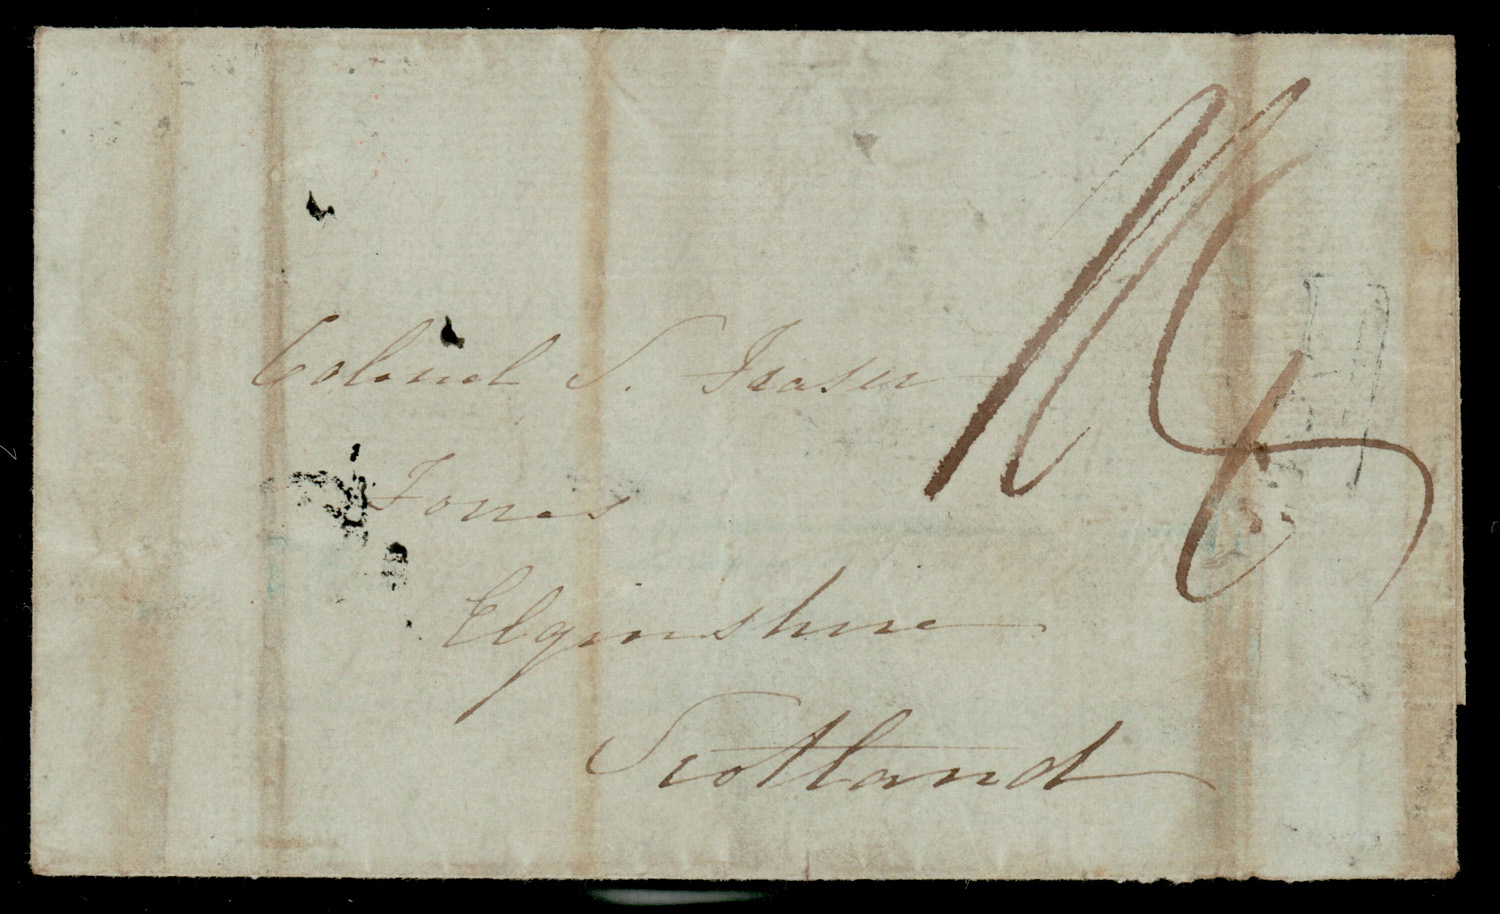 Colonel S. Fraser
Forres
Elginshire
Scotland